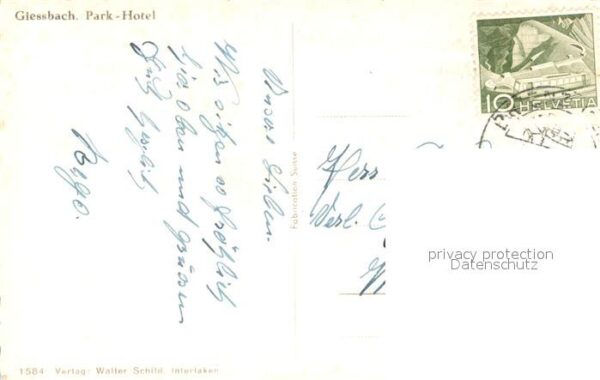 Giessbach. Park-Hotel
Unsere Lieben.
Wir sitzen so fröhlich
hier oben und grüssen
Euch herzlich
10
HELVETIA
Fabrication Suisse
Herr
Verl.
privacy protection
Datenschutz
1584 Verlag: Walter Schild, Interlaken